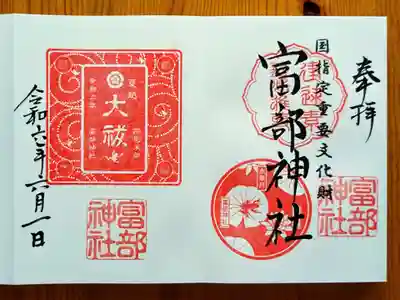 奉拝
国指定重要文化財
富部神社
富部
神社
夏越
大祓
富部
神社
令和六年六月一日